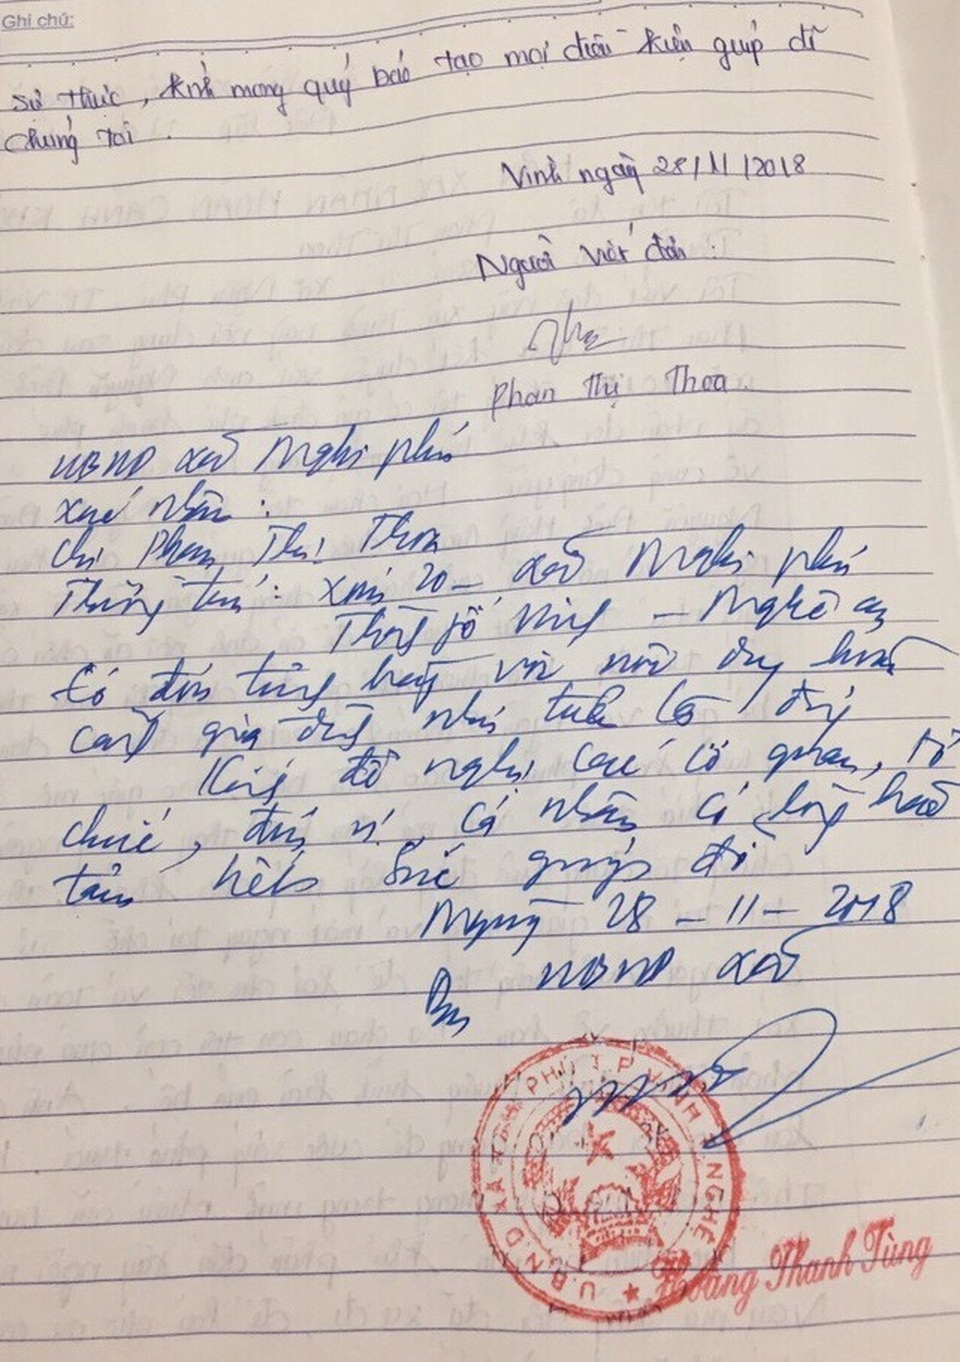 Ghi chú:
sự thực, kính mong quý báo tạo mọi điều kiện giúp đỡ
chúng tôi.
Vinh ngày 28/11/2018
Người viết đơn:
Phan Thị Thoa.
UBND xã Nghi phú
xác nhận:
chị Phan Thị Thoa
Thường trú: xóm 20 - xã Nghi phú
Thành phố Vinh - Nghệ an
Có đơn trình bày với nội dung hoàn
cảnh gia đình như trên là đúng
Kính đề nghị các cơ quan, tổ
chức, đơn vị, cá nhân có lòng hảo
tâm hết sức giúp đỡ
Ngày 28 - 11 - 2018
UBND xã
U.B.N.D XÃ NGHI PHÚ T.P VINH NGHỆ
Hoàng Thanh Tùng